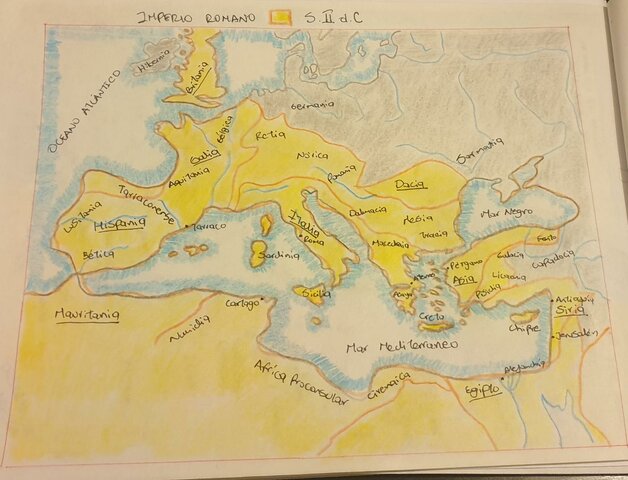 IMPERIO ROMANO S. II d.C
OCEANO ATLÁNTICO
Hibernia
Britania
Germania
Bélgica
Retia
Galia
Nórica
Aquitania
Panonia
Sarmatia
Dacia
Tarraconense
Lusitania
Hispania
Bética
Tarraco
Italia
Roma
Sardinia
Dalmacia
Mesia
Tracia
Macedonia
Mar Negro
Ponto
Galacia
Capadocia
Pérgamo
Asia
Licaonia
Atenas
Acaya
Creta
Sicilia
Cartago
Mauritania
Numidia
Mar Mediterraneo
Chipre
Antioquía
Siria
Jerusalén
Africa Proconsular
Cirenaica
Alejandría
Egipto